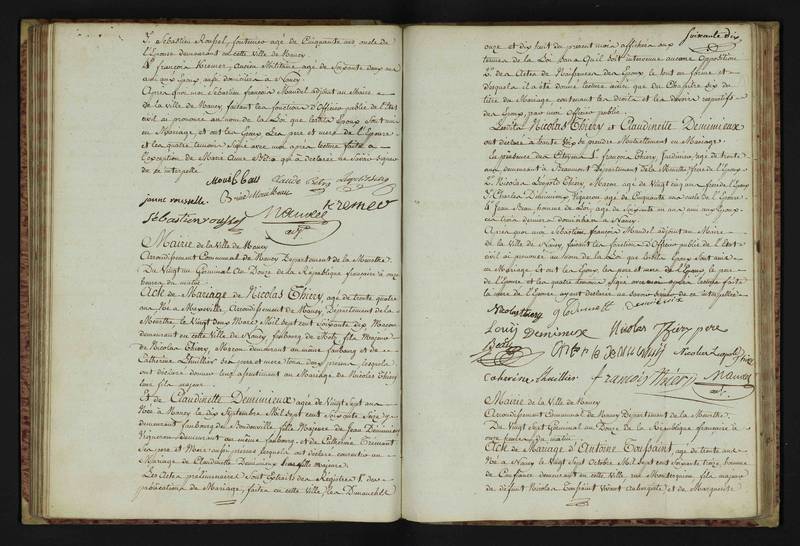 S. Sébastien Roussel, agé de Cinquante ans oncle de
l'Epouse demeurant en cette Ville de Nancy
4° françois Kremer, ancien Militaire agé de Soixante deux ans
ami aux Epoux, aussi domicilié à Nancy.
Après quoi moi Sébastien françois Mandel adjoint au Maire
de la Ville de Nancy, faisant les fonctions d'Officier public de l'Etat
civil ai prononcé au nom de la Loi que lesdits Epoux sont unis
en Mariage, et ont les Epoux, les pere et mere de l'Epouse
et les quatre temoins Signé avec moi après lecture faite à
l'exception de Marie Anne qui a déclaré ne Savoir signer
de ce interpellé
Claude
jeanne
Sebastien roussel Mandel Kremer
adjt
Mairie de la Ville de Nancy
Arrondissement Communal de Nancy Département de la Meurthe
Du Vingt un Germinal an Douze de la République française à onze
heures du matin
Acte de Mariage de Nicolas Thiery, agé de trente quatre
ans Né à Maxeville, Arrondissement de Nancy, Département de la
Meurthe, le Vingt deux Mars Mil Sept cent Soixante dix Macon
demeurant en cette Ville de Nancy faubourg de Metz, fils Majeur
de Nicolas Thiery, Macon demeurant au même faubourg et de
Catherine Lhuillier ses pere et mere tous deux presens lesquels
ont déclaré donner leur consentement au Mariage de Nicolas Thiery
leur fils majeur
Et de Claudinette Deminieux agée de Vingt Sept ans
Née à Nancy le dix Septembre Mil Sept cent Soixante Seize
demeurant faubourg de Boudonville fille Majeure de Jean Deminieux
Vigneron demeurant au même faubourg et de Catherine
Ses pere et Mere aussi presens lesquels ont déclaré consentir au
Mariage de Claudinette Deminieux leur fille majeure.
Les Actes préliminaires Sont Extraits des Registres 1° des
publications de Mariage, faites en cette Ville, les Dimanches
Soixante dix
onze et dix huit du présent mois affichées aux
termes de la Loi Sans qu'il soit intervenue aucune Opposition
2° des Actes de Naissances des Epoux le tout en forme et
desquels il a été donné lecture ainsi que du Chapitre Six du
titre du Mariage, contenant les droits et les devoirs respectifs
des Epoux, par moi Officier public
Lesdits Nicolas Thiery et Claudinette Deminieux
ont déclaré à haute Voix se prendre Mutuellement en Mariage.
En présence des Citoyens 1° françois Thiery, agé de trente
ans, demeurant à Département de la Meurthe frere de l'Epoux
2° Nicolas Leopold Thiery, Macon, agé de Vingt cinq ans frere de l'Epoux
3° Charles Deminieux, Vigneron agé de Cinquante ans oncle de l'Epouse
4° Jean homme de Loi, agé de Soixante un ans ami aux Epoux
ces trois derniers domiciliés à Nancy.
Après quoi moi Sébastien françois Mandel adjoint au Maire
de la Ville de Nancy, faisant les fonctions d'Officier public de l'Etat
civil ai prononcé au Nom de la Loi que lesdits Epoux Sont unis
en Mariage Et ont les Epoux, les pere et mere de l'Epoux, le pere
de l'Epouse et les quatre temoins Signé avec moi après lecture faite
la mere de l'Epouse ayant déclaré ne Savoir Signer de ce interpellée
Nicolas thiery Deminieux
Louis Deminieux Nicolas Thiery pere
Nicolas Leopold Thiery
Catherine Lhuillier françois Thiery Mandel
adjt
Mairie de la Ville de Nancy
Arrondissement Communal de Nancy Département de la Meurthe
Du Vingt Sept Germinal an Douze de la République française à
onze heures du matin
Acte de Mariage d'Antoine Toussaint, agé de trente ans
Né à Nancy le Vingt Sept Octobre Mil Sept cent Soixante treize, homme
de Confiance demeurant en cette Ville, rue Montesquieu fils majeur
de défunt Nicolas Toussaint Vivant Aubergiste et de Marguerite